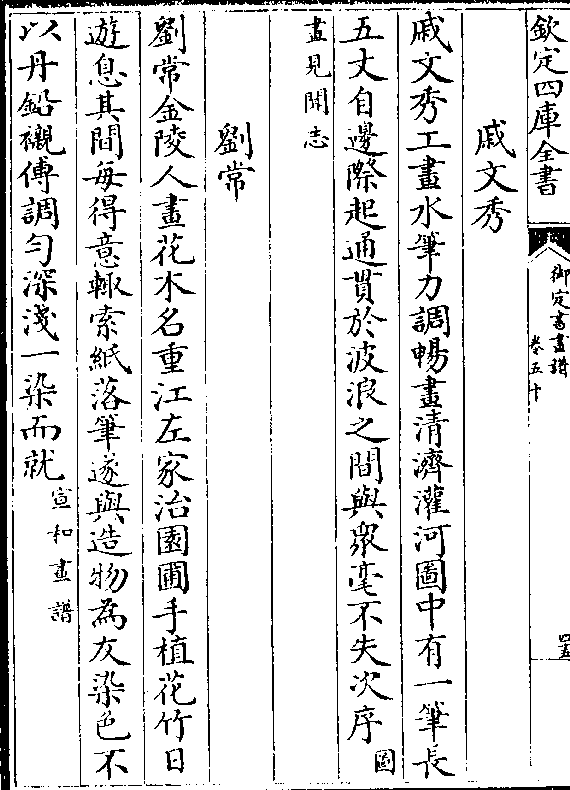 欽定四庫全書
御定書畫譜
卷五十
四五
戚文秀
戚文秀工畫水筆力調暢畫清濟灌河圖中有一筆長
五丈自邊際起通貫於波浪之間與衆毫不失次序圖
畫見聞志
劉常
劉常金陵人畫花木名重江左家治園圃手植花竹日
遊息其間每得意輙索紙落筆遂與造物為友染色不
以丹鉛襯傅調勻深淺一染而就宣和畫譜